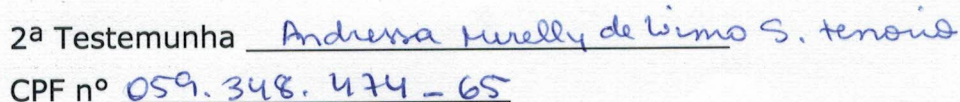 2ª Testemunha Andressa Mirelly de Lima S. Tenorio
CPF nº 059.348.474-65